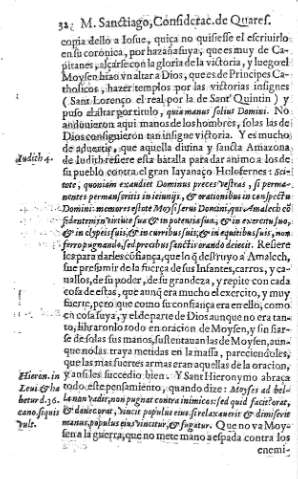 32 M. Sanctiago, Considerac. de Quares.
copia dello a Iosue, quiça no quisiesse el escriuirlo
en su coronica, por hazaña suya, que es muy de Ca-
pitanes, alçarse con la gloria de la victoria, y luego el
Moysen hizo vn altar a Dios, que es de Principes Ca-
tholicos, hazer templos por las victorias insignes
(Sant Lorenço el real por la de Sant Quintin) y
puso al altar por titulo, quia manus solius Domini. No
anduuieron aqui manos de los hombres, solas las de
Dios consiguieron tan insigne victoria. Y es mucho
de aduertir, que aquella diuina y sancta Amazona
Iudith 4.
de Iudith refiere esta batalla para dar animo a los de
su pueblo contra el gran Holofernes: Sci-
tote, quoniam exaudiet Dominus preces vestras, si perma-
nentes permanseritis in ieiunijs, & orationibus in conspectu
Domini: memores estote Moysi serui Domini, qui Amalech cõ
fidentem in virtute sua & in potentia sua, & in exercitu suo,
& in clypeis suis, & in curribus suis, & in equitibus suis, non
ferro pugnando, sed precibus sanctis orando deiecit. Refiere
les para darles cõfiança, que lo q̃ destruyo a Amalech,
fue presumir de la fuerça de sus Infantes, carros, y ca-
uallos, de su poder, de su grandeza, y repite con cada
cosa de estas, que aunq̃ era mucho el exercito, y muy
fuerte, pero que como su confiança era en ello, como
en cosa suya, y el de parte de Dios aunque no era tan-
to, libraronlo todo en oracion de Moysen, y sin fiar-
se de solas sus manos, sustentauan las de Moysen, aun-
que no las traya metidas en la massa, pareciendoles,
que las mas fuertes armas eran aquellas de la oracion,
Hieron. in
y assi les succedio bien. Y Sant Hieronymo abraça
Leui & ha
todo este pensamiento, quando dize: Moyses ad bel-
betur d. 36.
la non vadit, non pugnat contra inimicos: sed quid facit? orat,
cano. si quis
& donec orat, vincit populus eius, si relaxauerit & dimiserit
vult.
manus, populus eius vincitur, & fugatur. Que no va Moy-
sen a la guerra, que no mete mano a espada contra los
enemi-